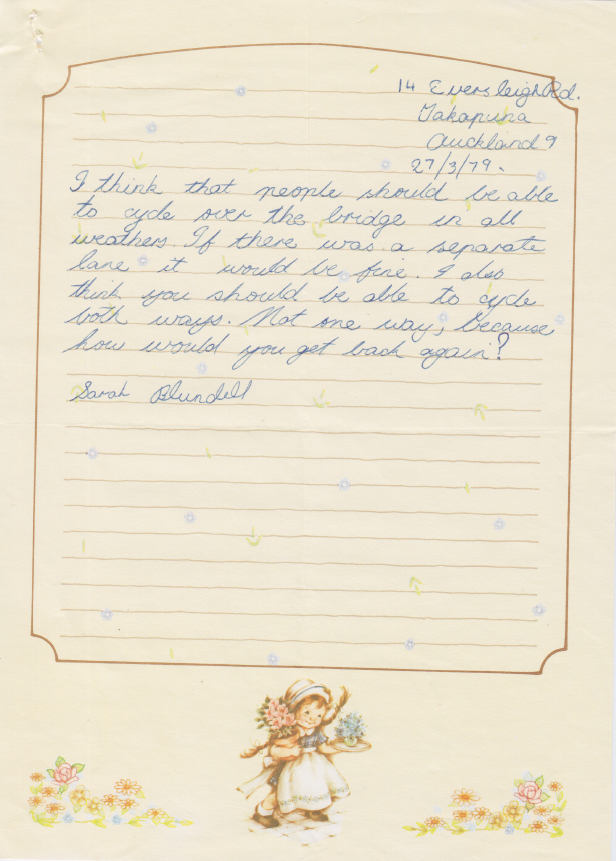 14 Eversleigh Rd.
Takapuna
Auckland 9
27/3/79.
I think that people should be able
to cycle over the bridge in all
weathers. If there was a separate
lane it would be fine. I also
think you should be able to cycle
both ways. Not one way, because
how would you get back again?
Sarah Blundell